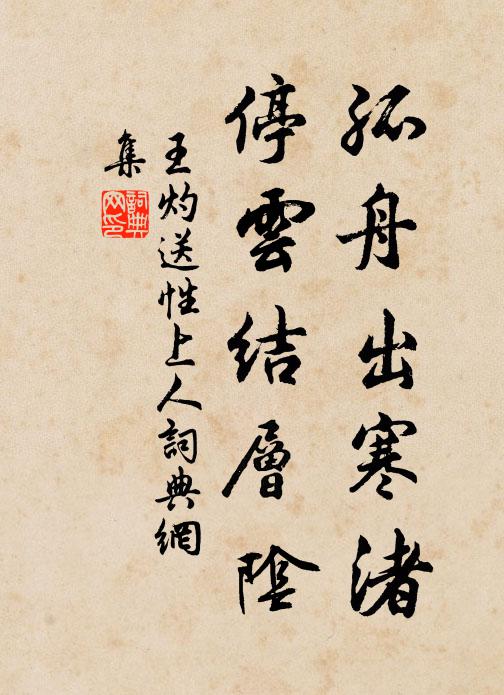 孤舟出寒渚
停雲結層陰
王灼送性上人詞典網
集
詞典
网印